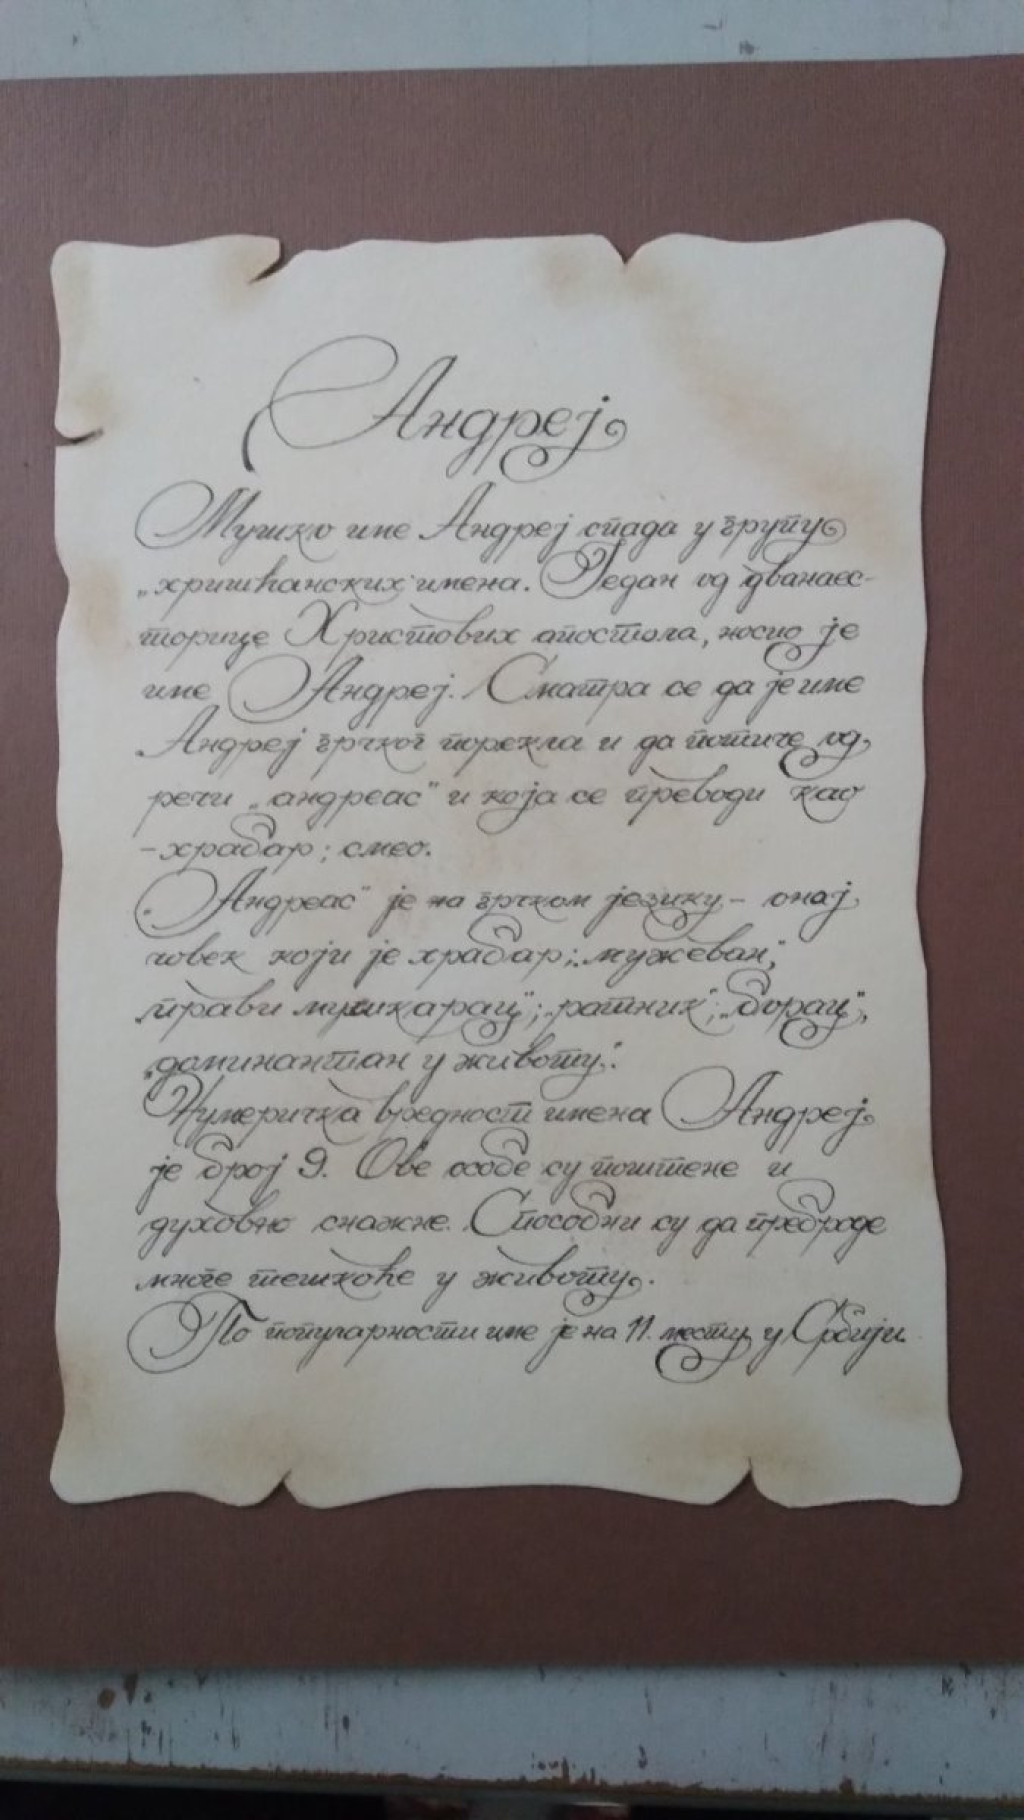 Андреј
Мушко име Андреј спада у групу
„хришћанских" имена. Један од дванаес-
торице Христових апостола, носио је
име Андреј. Сматра се да је име
Андреј грчког порекла и да потиче од
речи „андреас" и која се преводи као
- храбар; смео.
„Андреас" је на грчком језику - онај
човек који је храбар; „мужеван",
„прави мушкарац"; „ратник"; „борац",
„доминантан у животу".
Нумеричка вредност имена Андреј
је број 9. Ове особе су поштене и
духовно снажне. Способни су да преброде
многе тешкоће у животу.
По популарности име је на 11. месту у Србији.